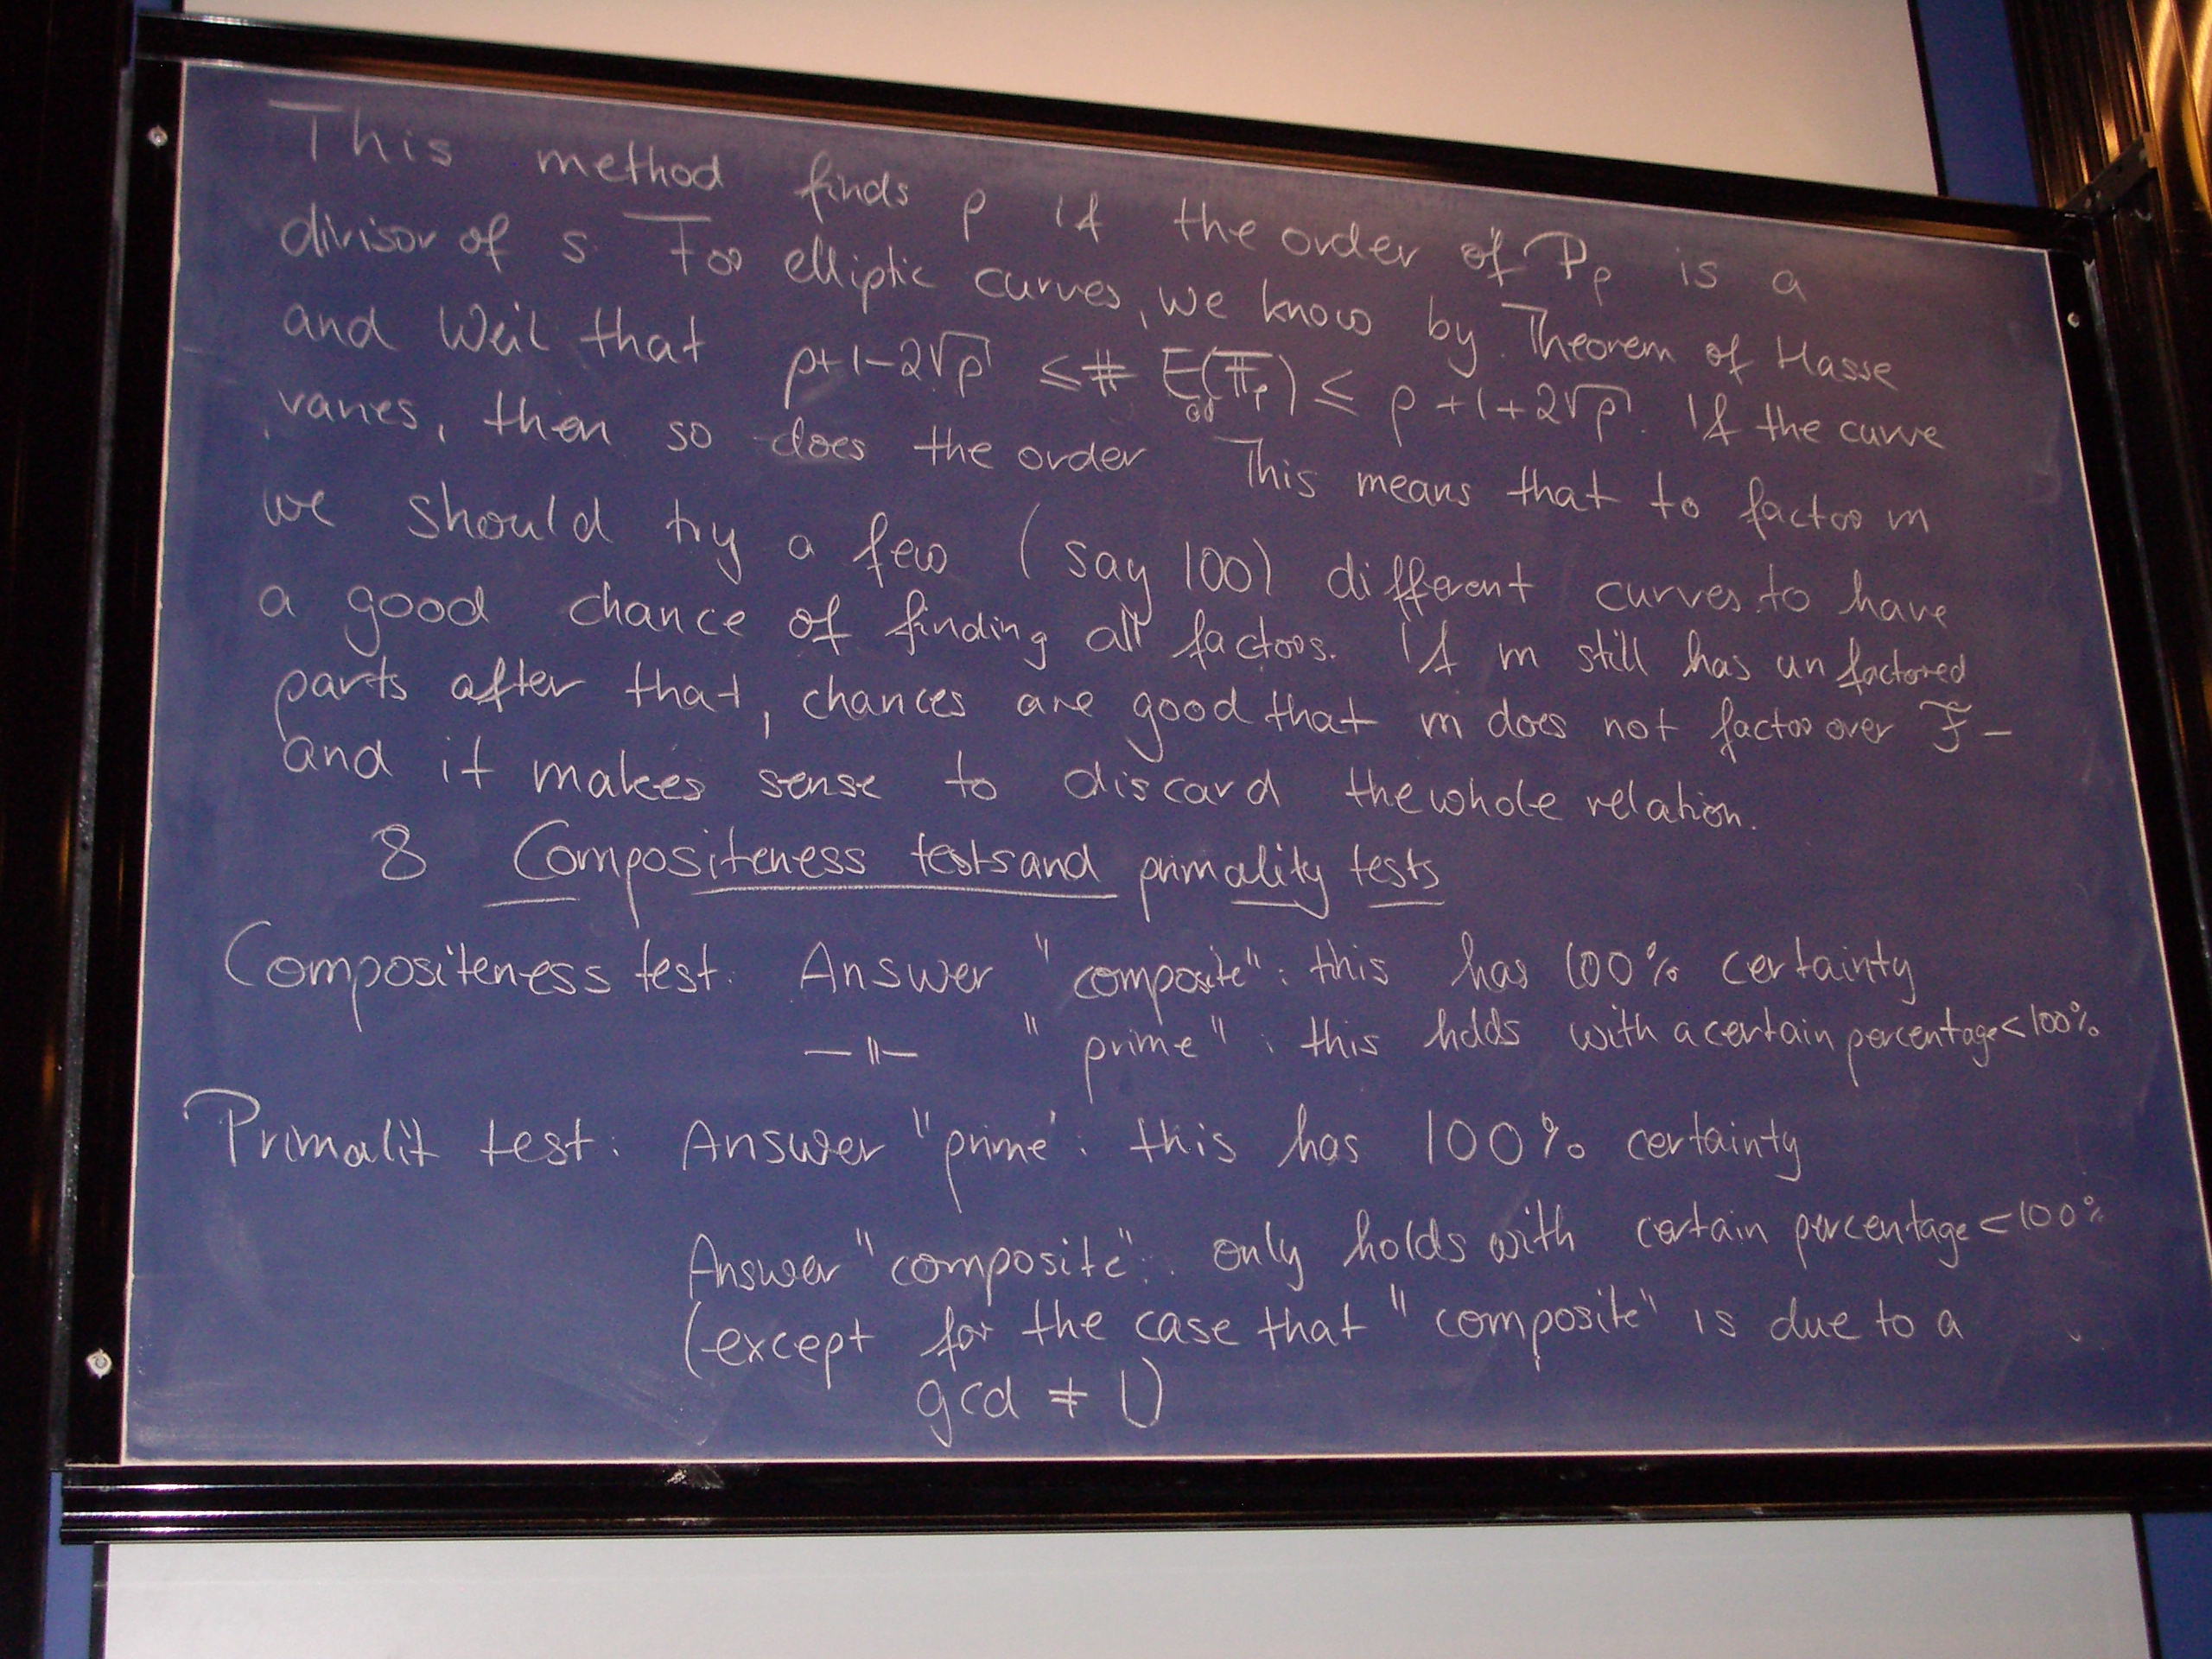 This method finds p if the order of P_p is a
divisor of s. For elliptic curves, we know by Theorem of Hasse
and Weil that p+1-2√p ≤ # E_{ad}(𝔽_p) ≤ p+1+2√p. If the curve
varies, then so does the order This means that to factor m
we should try a few (say 100) different curves to have
a good chance of finding all factors. If m still has unfactored
parts after that, chances are good that m does not factor over F -
and it makes sense to discard the whole relation.
8 Compositeness tests and primality tests
Compositeness test: Answer "composite": this has 100% certainty
—"— "prime": this holds with a certain percentage < 100%
Primalit test: Answer "prime": this has 100% certainty
Answer "composite": only holds with certain percentage < 100%
(except for the case that "composite" is due to a
gcd ≠ 1)